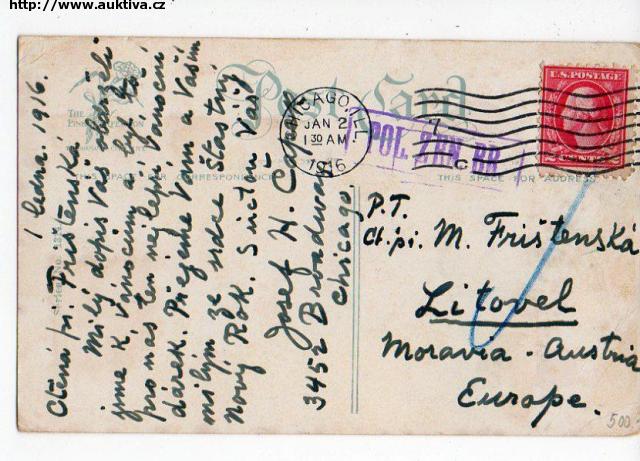 http://www.auktiva.cz
Post Card
THE
THIS SPACE FOR CORRESPONDENCE
THIS SPACE FOR ADDRESS
CHICAGO, ILL.
JAN 2
1 30 AM
1916
7
C
POL.
U.S. POSTAGE
2 CENTS 2
1 ledna 1916.
Ctěná pí. Frištenská
Milý dopis Váš obdrželi
jsme k Vánocům a byl to
pro nás ten nejlepší Vánoční
dárek. Přejeme Vám a Vašim
milým ze srdce šťastný
Nový Rok. S úctou Vaši
Josef H. Capek
3452 Broadway
Chicago
P.T.
Ct. pí. M. Frištenská
Litovel
Moravia - Austria
Europe.
500